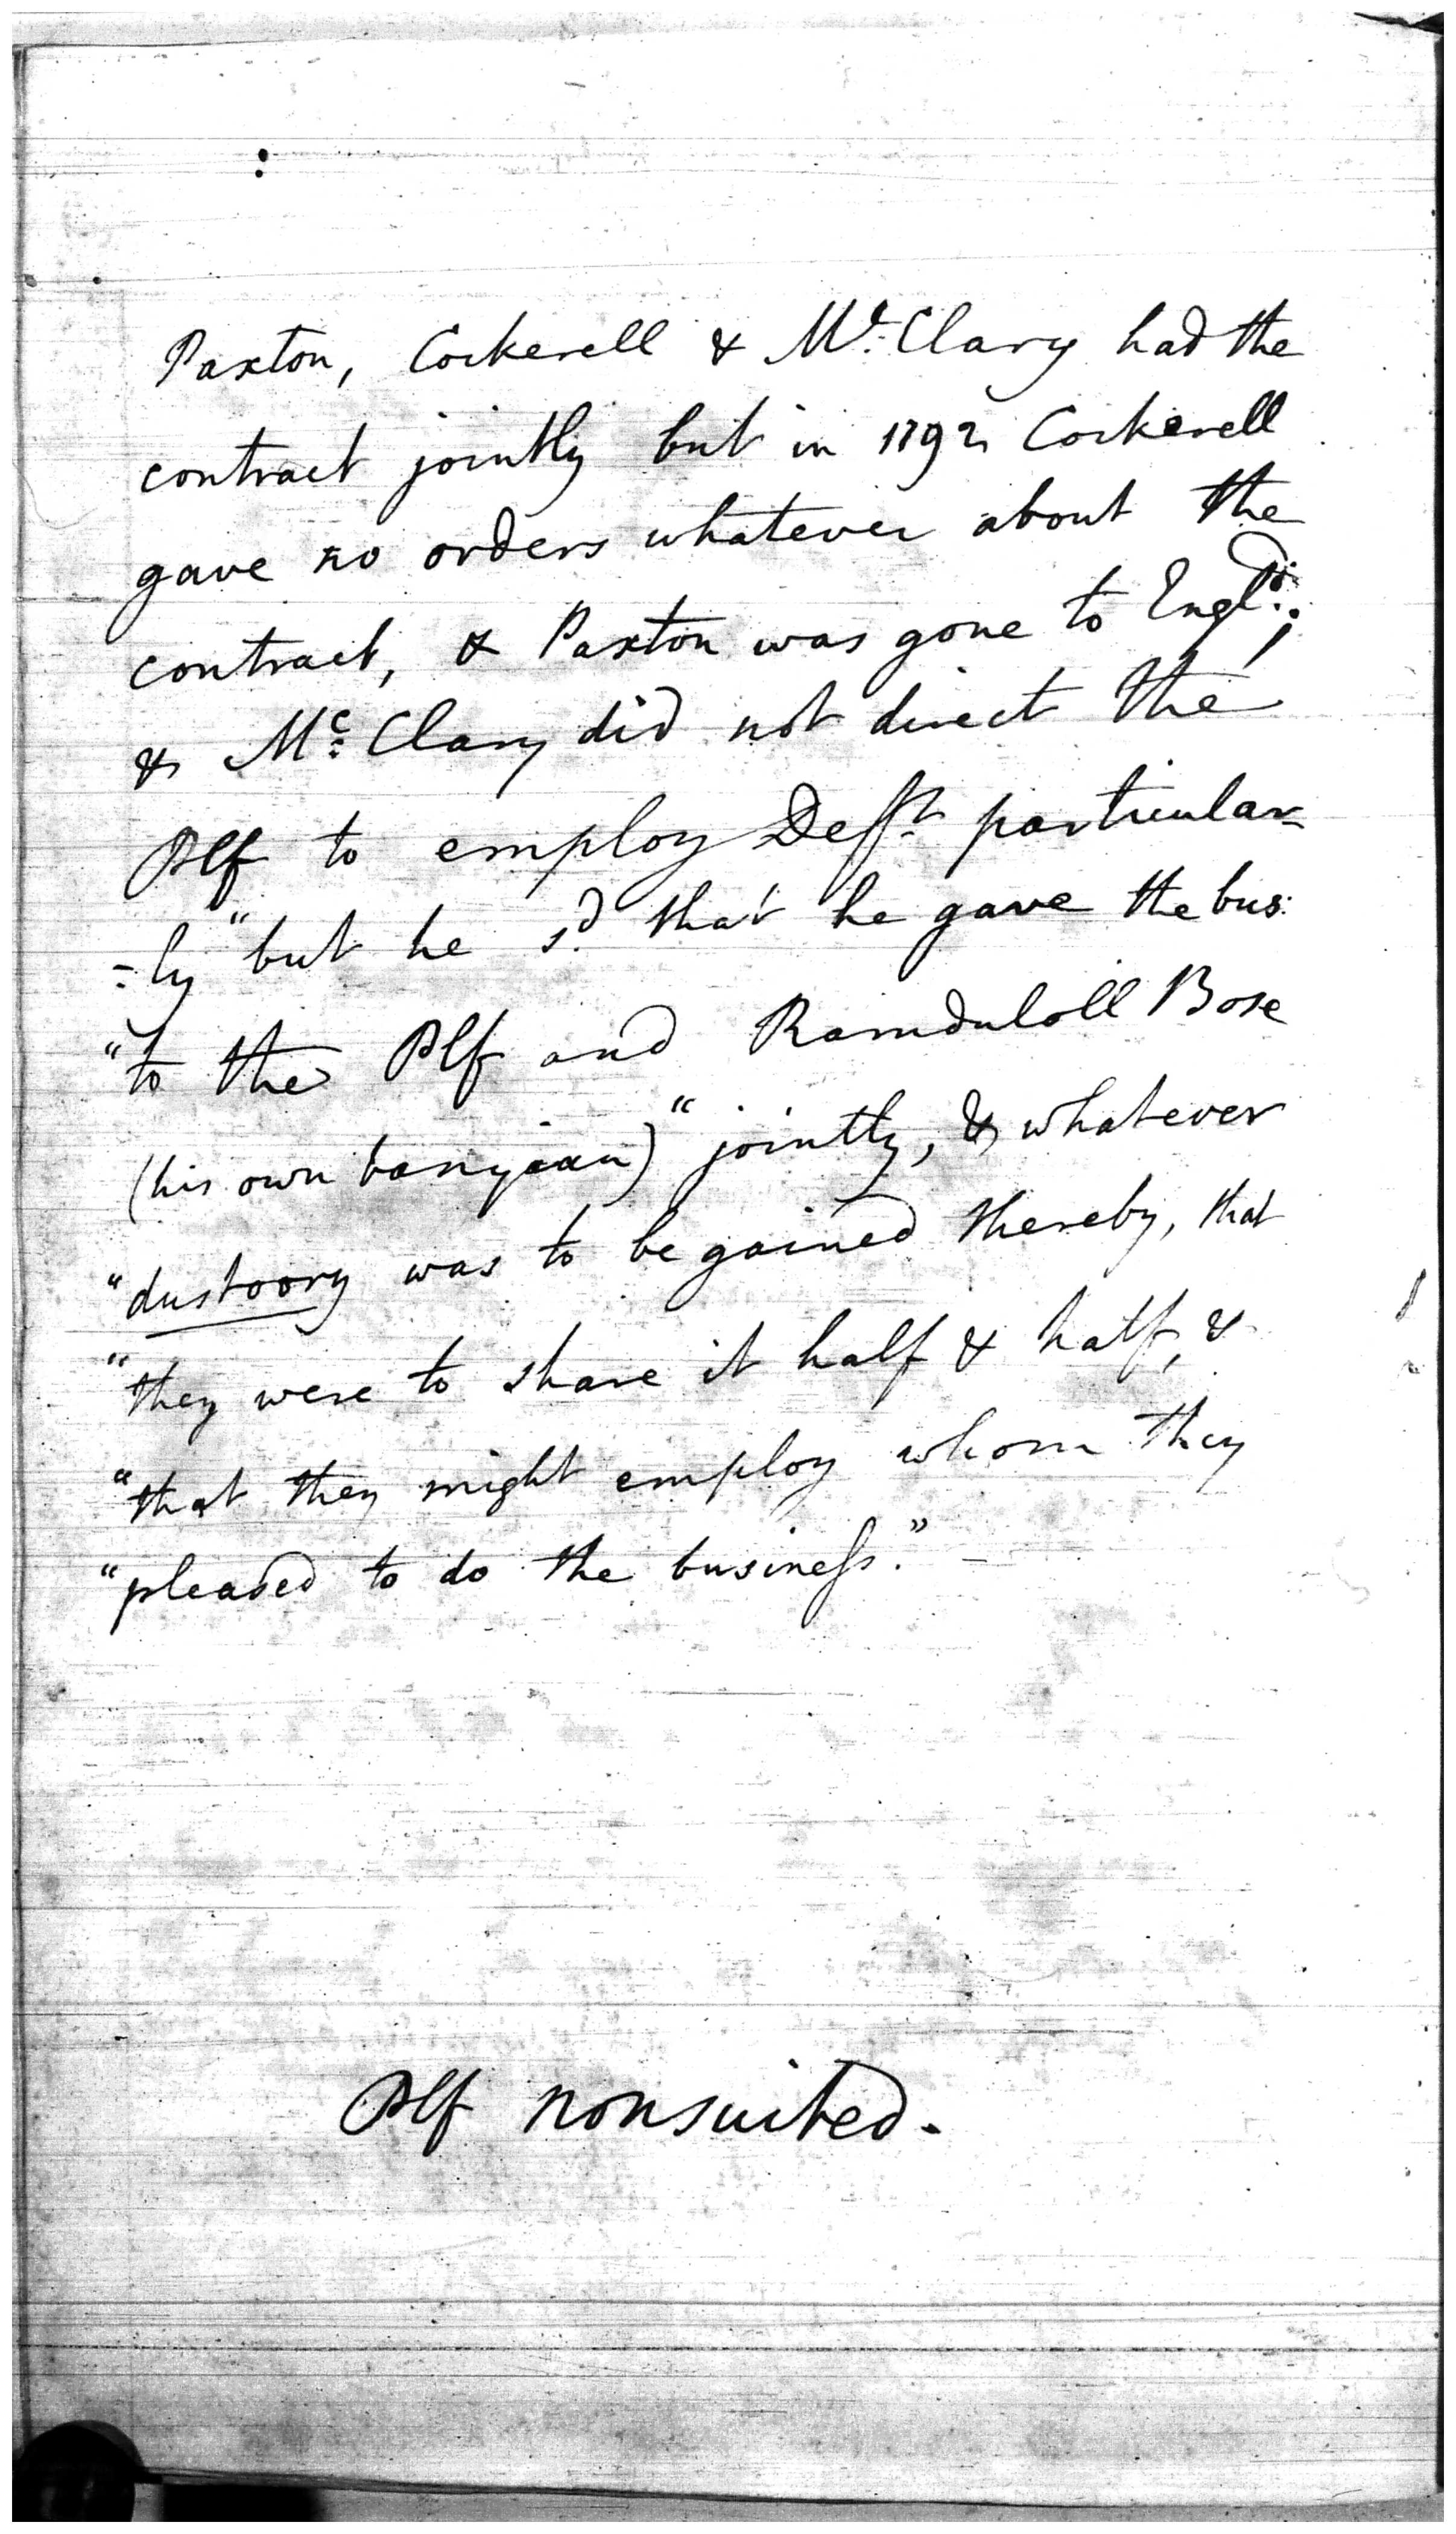 Paxton, Cockerell & Mc. Clary had the
contract jointly but in 1792 Cockerell
gave no orders whatever about the
contract, & Paxton was gone to Engld.;
& Mc. Clary did not direct the
Plf to employ Deft. particular=
=ly "but he sd. that he gave the bus:
"to the Plf and Ramduloll Bose
(his own banyaan) "jointly, & whatever
"dustoory was to be gained thereby, that
"they were to share it half & half, &
"that they might employ whom they
"pleased to do the business." -
Plf nonsuited.